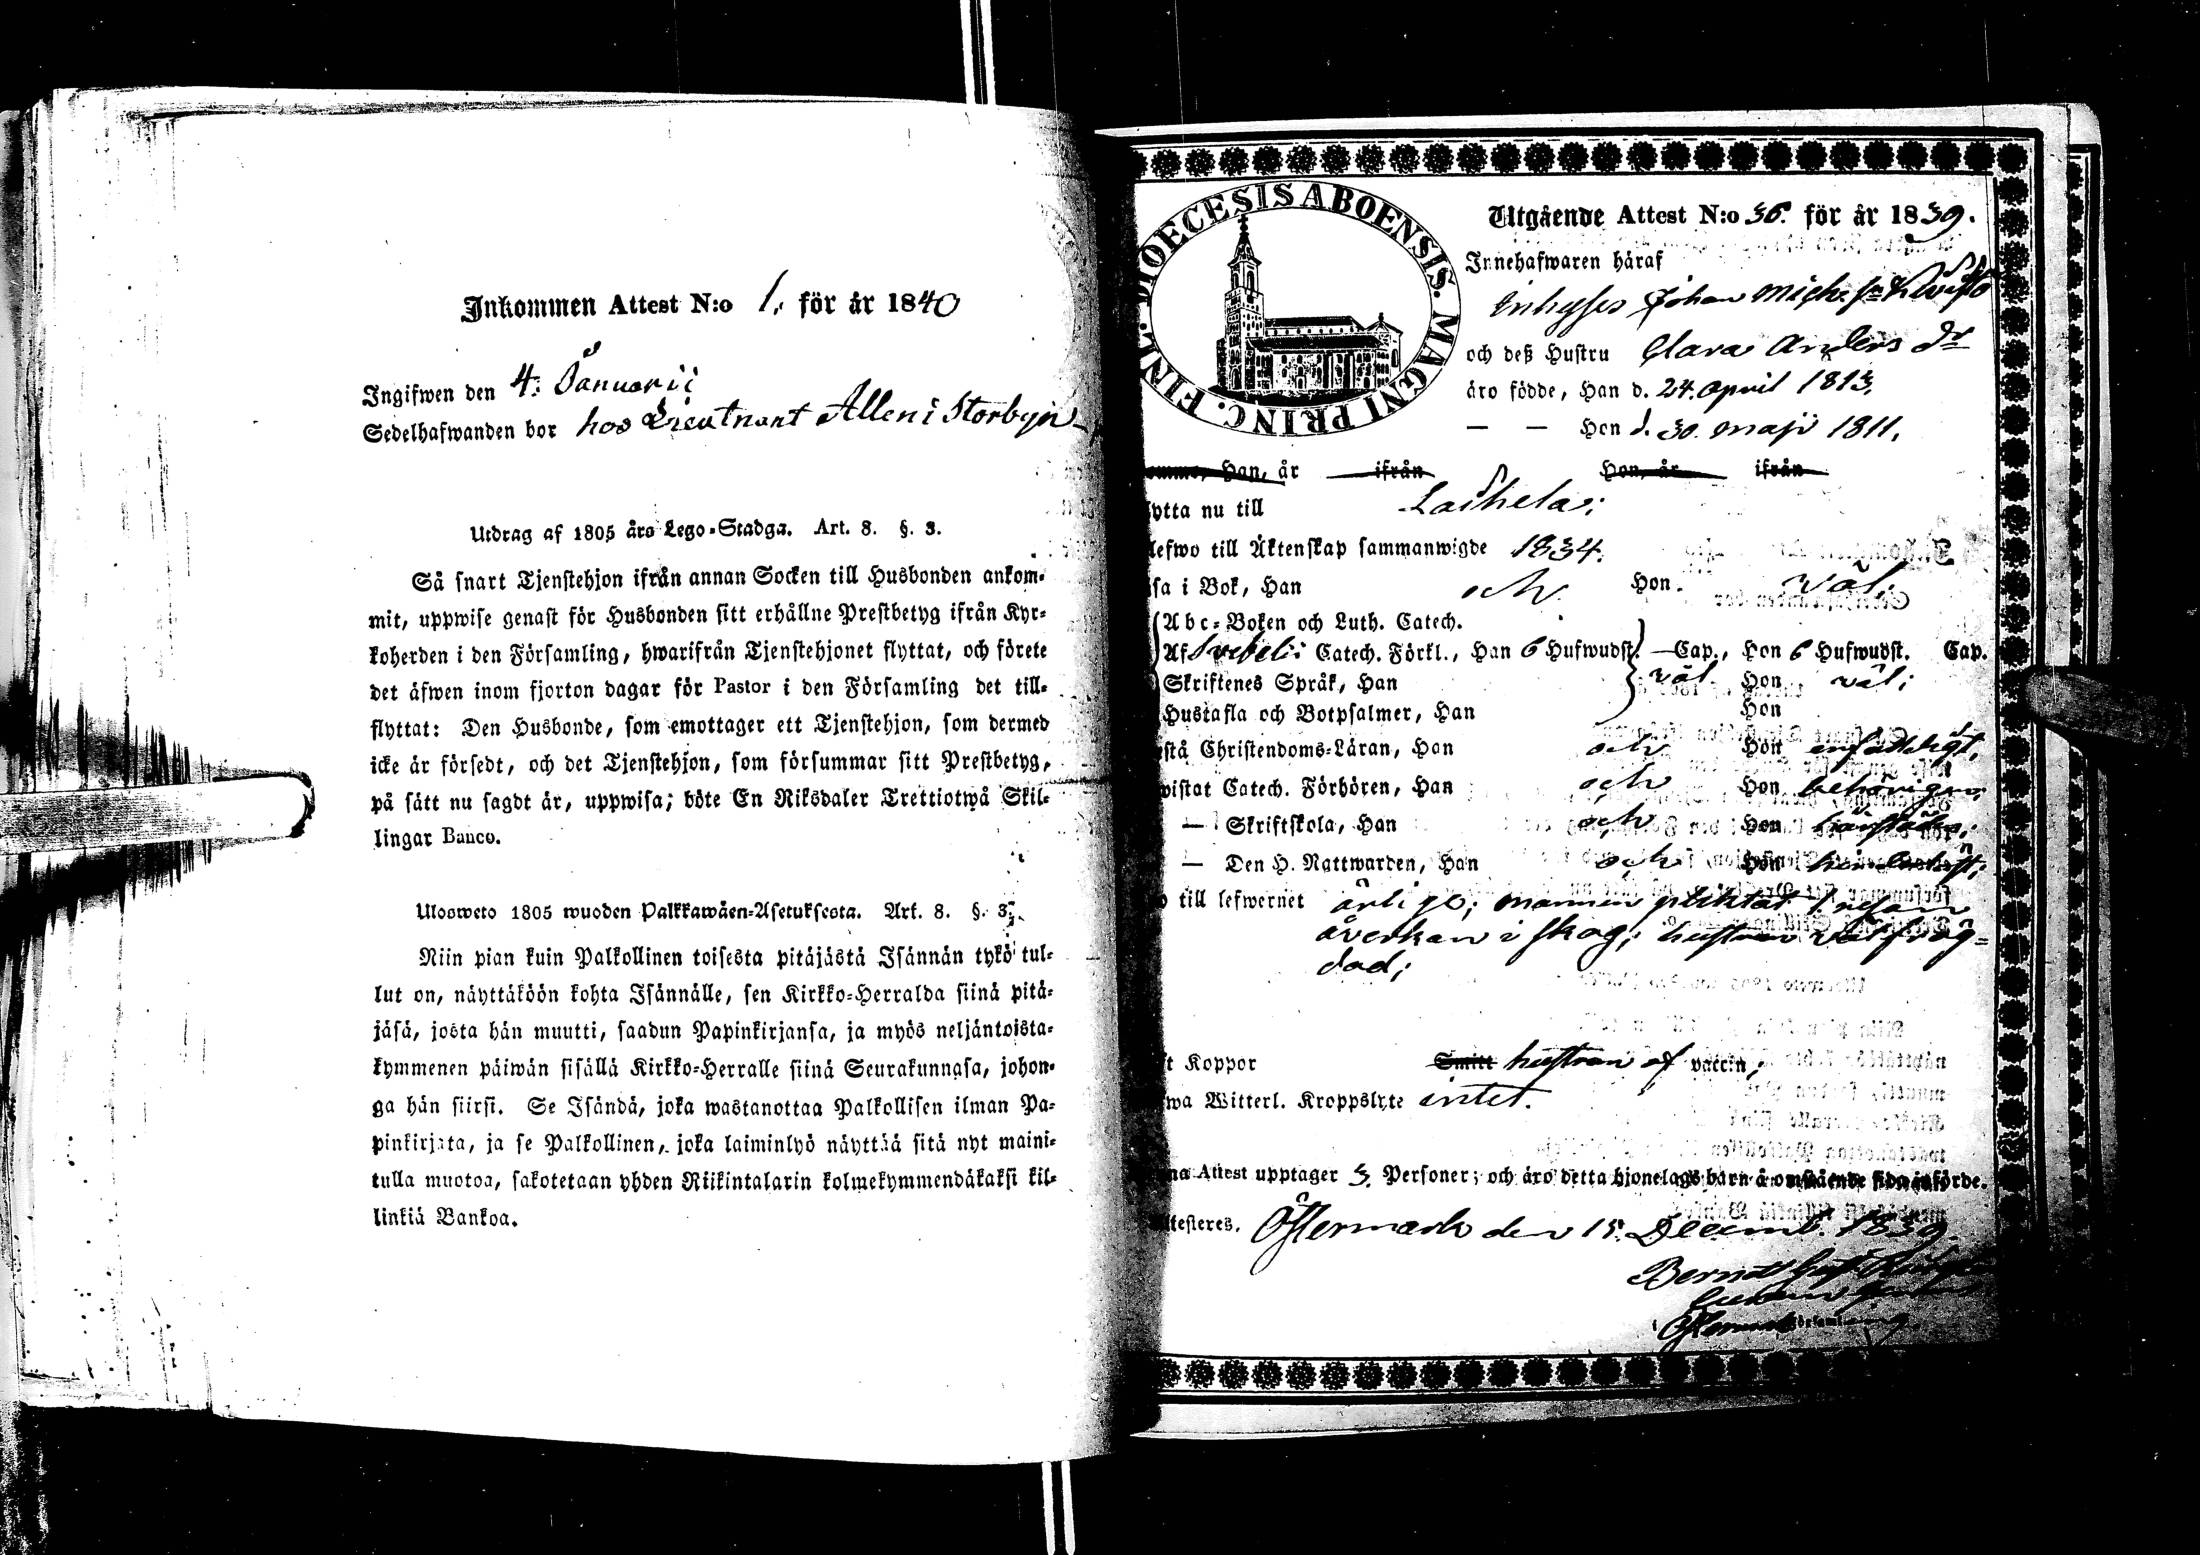 Inkommen Attest N:o 1. för år 1840
Ingifwen den 4. Januarii
Sedelhafwanden bor hos Lieutnant Allen i Storbyn
Utdrag af 1805 års Lego-Stadga. Art. 8. §. 3.
Så snart Tjenstehjon ifrån annan Socken till Husbonden ankom-
mit, uppwise genast för Husbonden sitt erhållne Prestbetyg ifrån Kyr-
koherden i den Församling, hwarifrån Tjenstehjonet flyttat, och förete
det äfwen inom fjorton dagar för Pastor i den Församling det till-
flyttat: Den Husbonde, som emottager ett Tjenstehjon, som dermed
icke är försedt, och det Tjenstehjon, som försummar sitt Prestbetyg,
på sätt nu sagdt är, uppwisa; böte En Riksdaler Trettiotwå Skil-
lingar Banco.
Ulosweto 1805 wuoden Palkkawäen-Asetuksesta. Art. 8. §. 3.
Niin pian kuin Palkollinen toisesta pitäjästä Isännän tykö tul-
lut on, näyttäköön kohta Isännälle, sen Kirkko-Herralda siinä pitä-
jäsä, josta hän muutti, saadun Papinkirjansa, ja myös neljäntoista-
kymmenen päiwän sisällä Kirkko-Herralle siinä Seurakunnasa, johon-
ga hän siirsi. Se Isändä, joka wastanottaa Palkollisen ilman Pa-
pinkirjata, ja se Palkollinen, joka laiminlyö näyttää sitä nyt maini-
tulla muotoa, sakotetaan yhden Riikintalarin kolmekymmendäkaksi kil-
linkiä Bankoa.
DIOECESIS ABOENSIS. MAGNI PRINC. FINL.
Utgående Attest N:o 36. för år 1839.
Innehafwaren häraf
Inhyses Johan Mich. sn
och deß Hustru Clara Anders dr
äro födde, Han d. 24. April 1813.
— — Hon d. 30. Maji 1811.
Han, år ifrån Hon, år ifrån
ytta nu till Laihela;
lefwo till Äktenskap sammanwigde 1834.
sa i Bok, Han och Hon. väl;
Abc-Boken och Luth. Catech.
Af Svebelii Catech. Förkl., Han 6 Hufwudst. — Cap., Hon 6 Hufwudst. Cap.
Skriftenes Språk, Han väl Hon väl;
Hustafla och Botpsalmer, Han Hon
stå Christendoms-Läran, Han och Hon enfaldeligt,
wistat Catech. Förhören, Han och Hon behörigen;
— Skriftskola, Han och Hon
— Den H. Nattwarden, Han och Hon
till lefwernet ärlige; mannen pliktat
åverkan i skog; hustrun välfräg-
dad;
t Koppor Smitt hustrun af vaccin;
wa Witterl. Kroppslyte intet.
na Attest upptager 3. Personer; och äro detta hjonelags barn å omstående sida införde.
ttesteres. Östermark den 15. Decemb. 1839.
Berndt
Östermark församling.